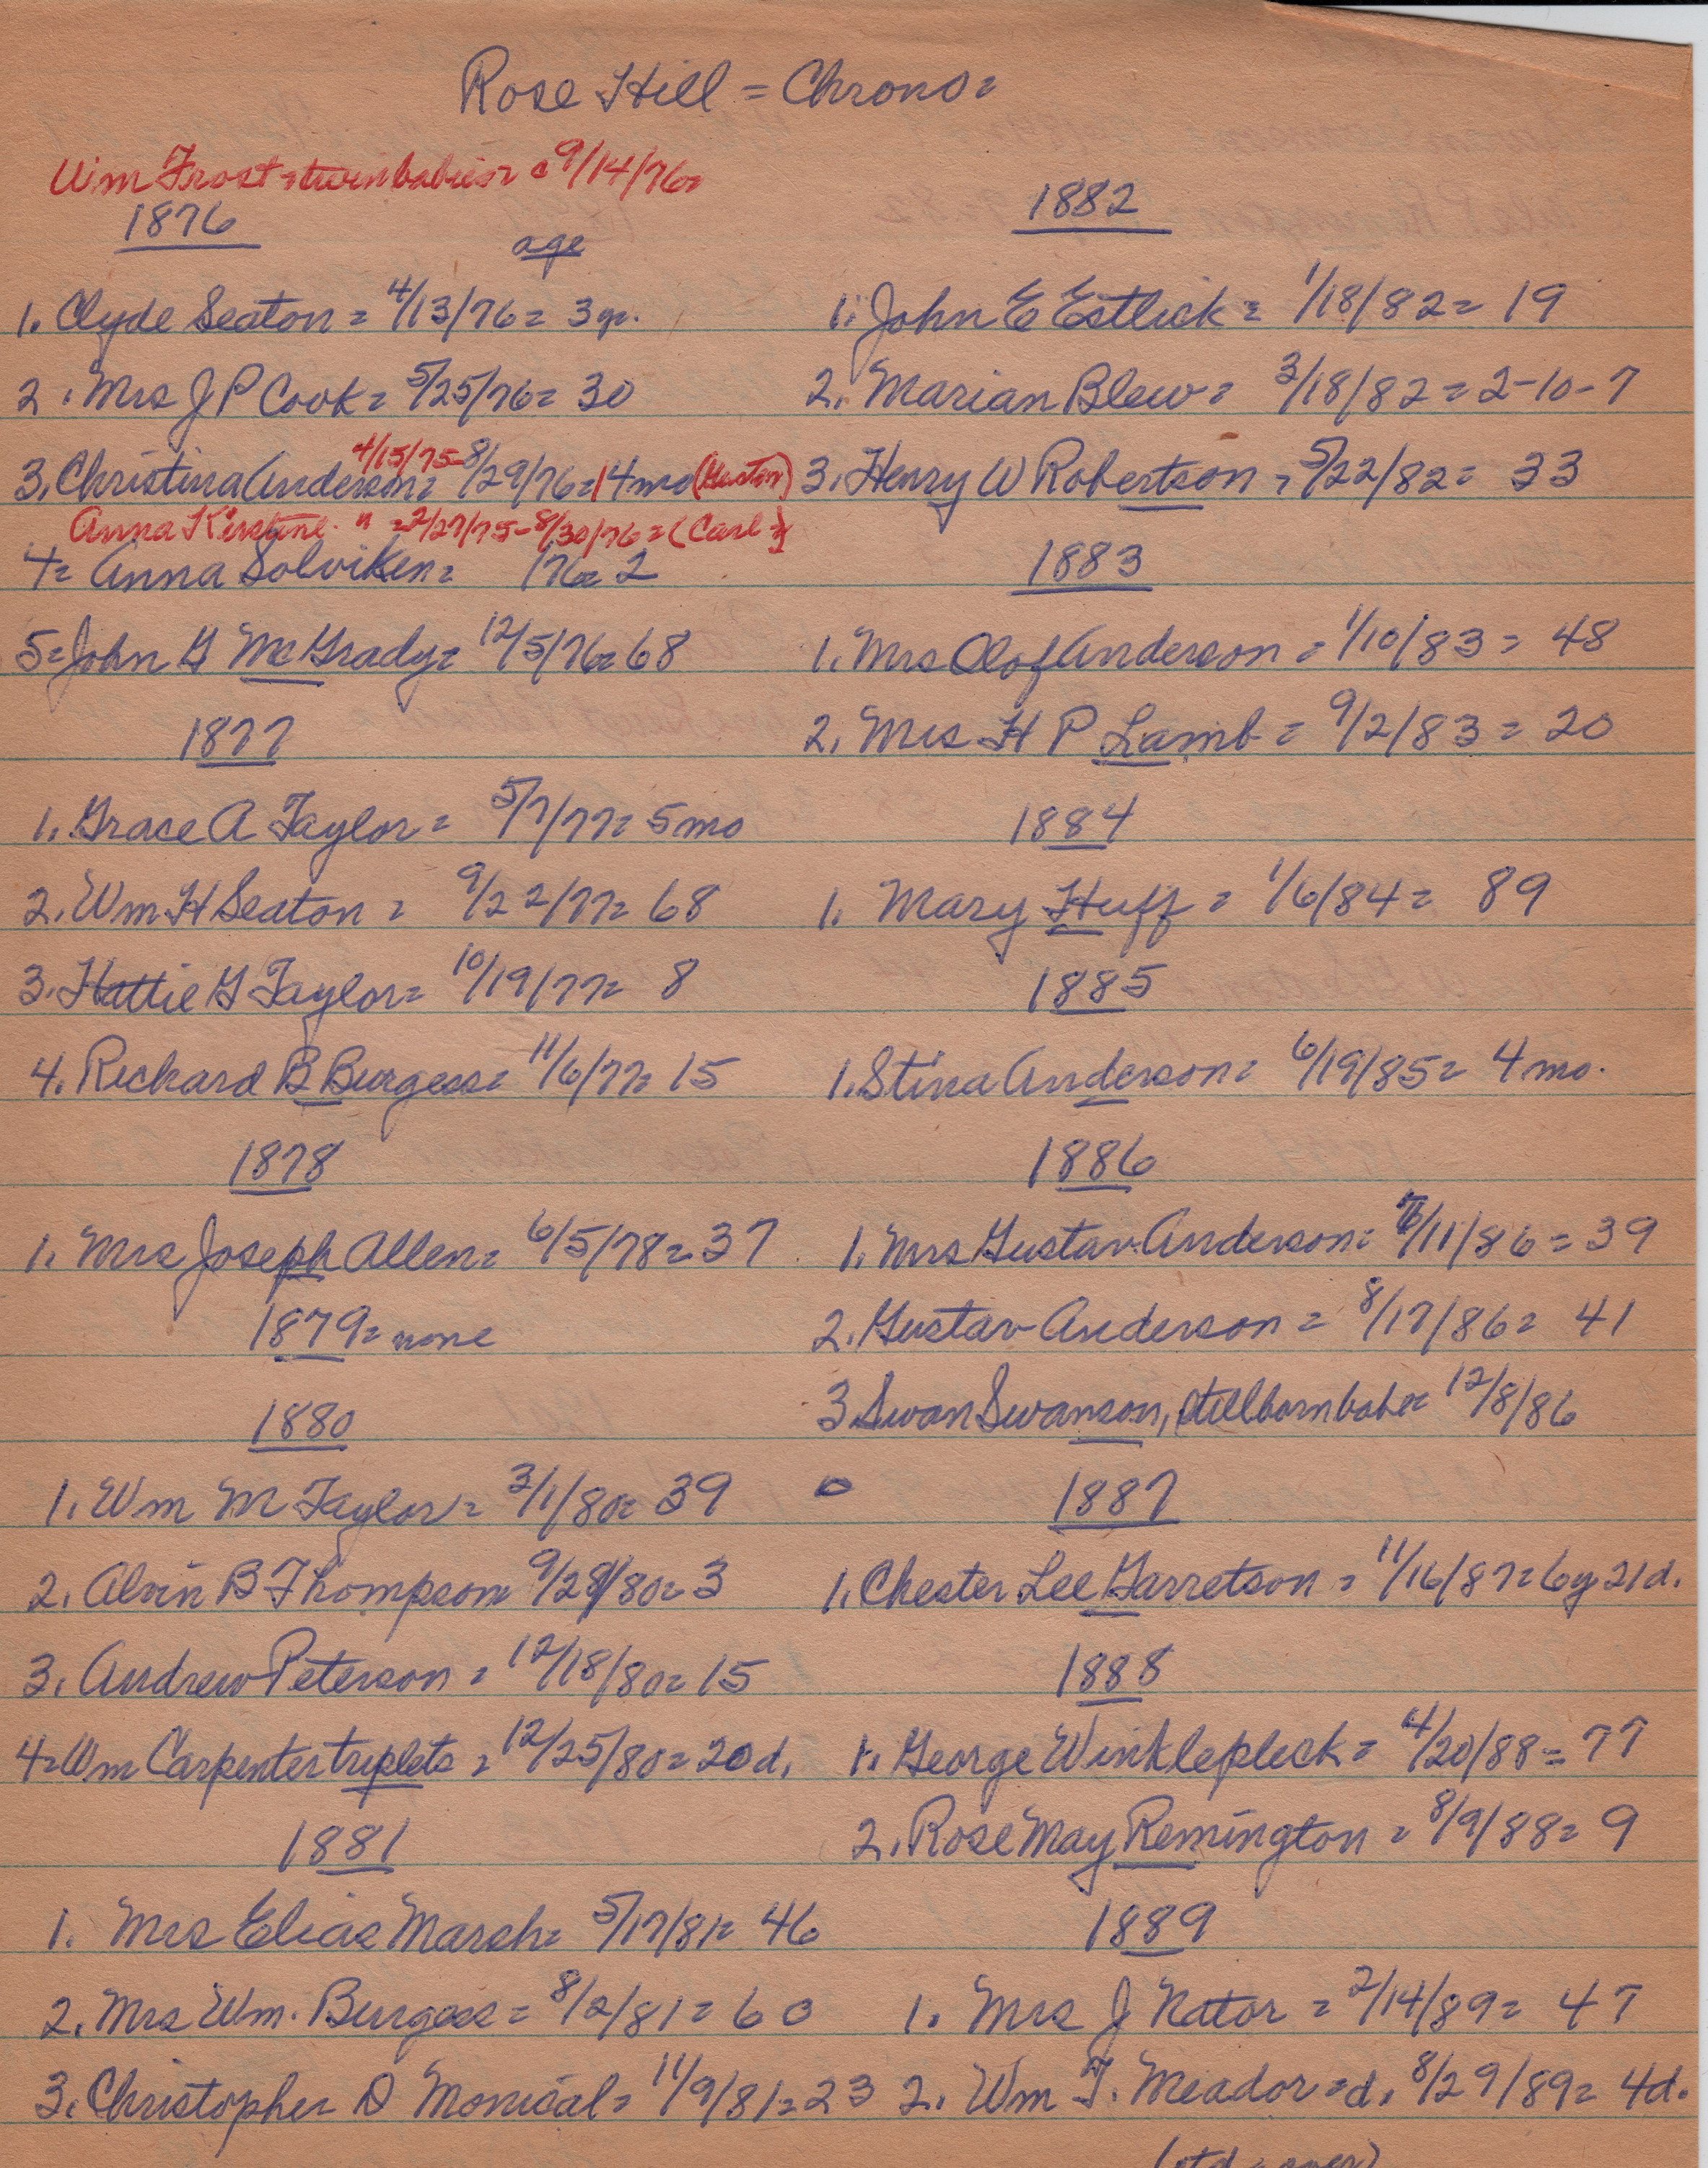 Rose Hill = Chrono=
Wm Frost = twin babies = c 9/14/76=
1876
age
1. Clyde Seaton = 4/13/76 = 3 yr.
2. Mrs J P Cook = 5/25/76= 30
4/15/75-
3. Christina Anderson = 8/29/76=14mo (Gustav)
Anna Kirstine " = 2/27/75-8/30/76=(Carl)
4= Anna Solviken= /76= 2
5=John G McGrady= 12/5/76= 68
1877
1. Grace A Taylor = 5/7/77= 5mo
2. Wm H Seaton = 9/22/77= 68
3. Hattie G Taylor= 10/19/77= 8
4. Richard B Burgess= 11/6/77= 15
1878
1. Mrs Joseph Allen= 6/5/78= 37
1879= none
1880
1. Wm M Taylor = 3/1/80= 39
2. Alvin B Thompson 9/28/80= 3
3. Andrew Peterson = 12/18/80= 15
4=Wm Carpenter triplets = 12/25/80= 20d.
1881
1. Mrs Elias Marsh= 5/17/81= 46
2. Mrs Wm. Burgess = 8/2/81= 60
3. Christopher D Monical= 11/9/81= 23
1882
1. John E Estlick = 1/18/82= 19
2. Marian Blew= 3/18/82= 2-10-7
3. Henry W Robertson = 5/22/82= 33
1883
1. Mrs Olof Anderson = 1/10/83 = 48
2. Mrs H P Lamb = 9/2/83 = 20
1884
1. Mary Huff = 1/6/84= 89
1885
1. Stina Anderson= 6/19/85= 4 mo.
1886
1. Mrs Gustav Anderson= /11/86 = 39
2. Gustav Anderson = 8/17/86= 41
3 Swan Swanson, stillborn babe= 12/8/86
1887
1. Chester Lee Garretson = 11/16/87= 6y 21d.
1888
1. George Winklepleck= 4/20/88= 77
2. Rose May Remington = 8/9/88= 9
1889
1. Mrs J Nator = 2/14/89= 47
2. Wm F. Meador =d. 8/29/89= 4d.
(ctd = over)